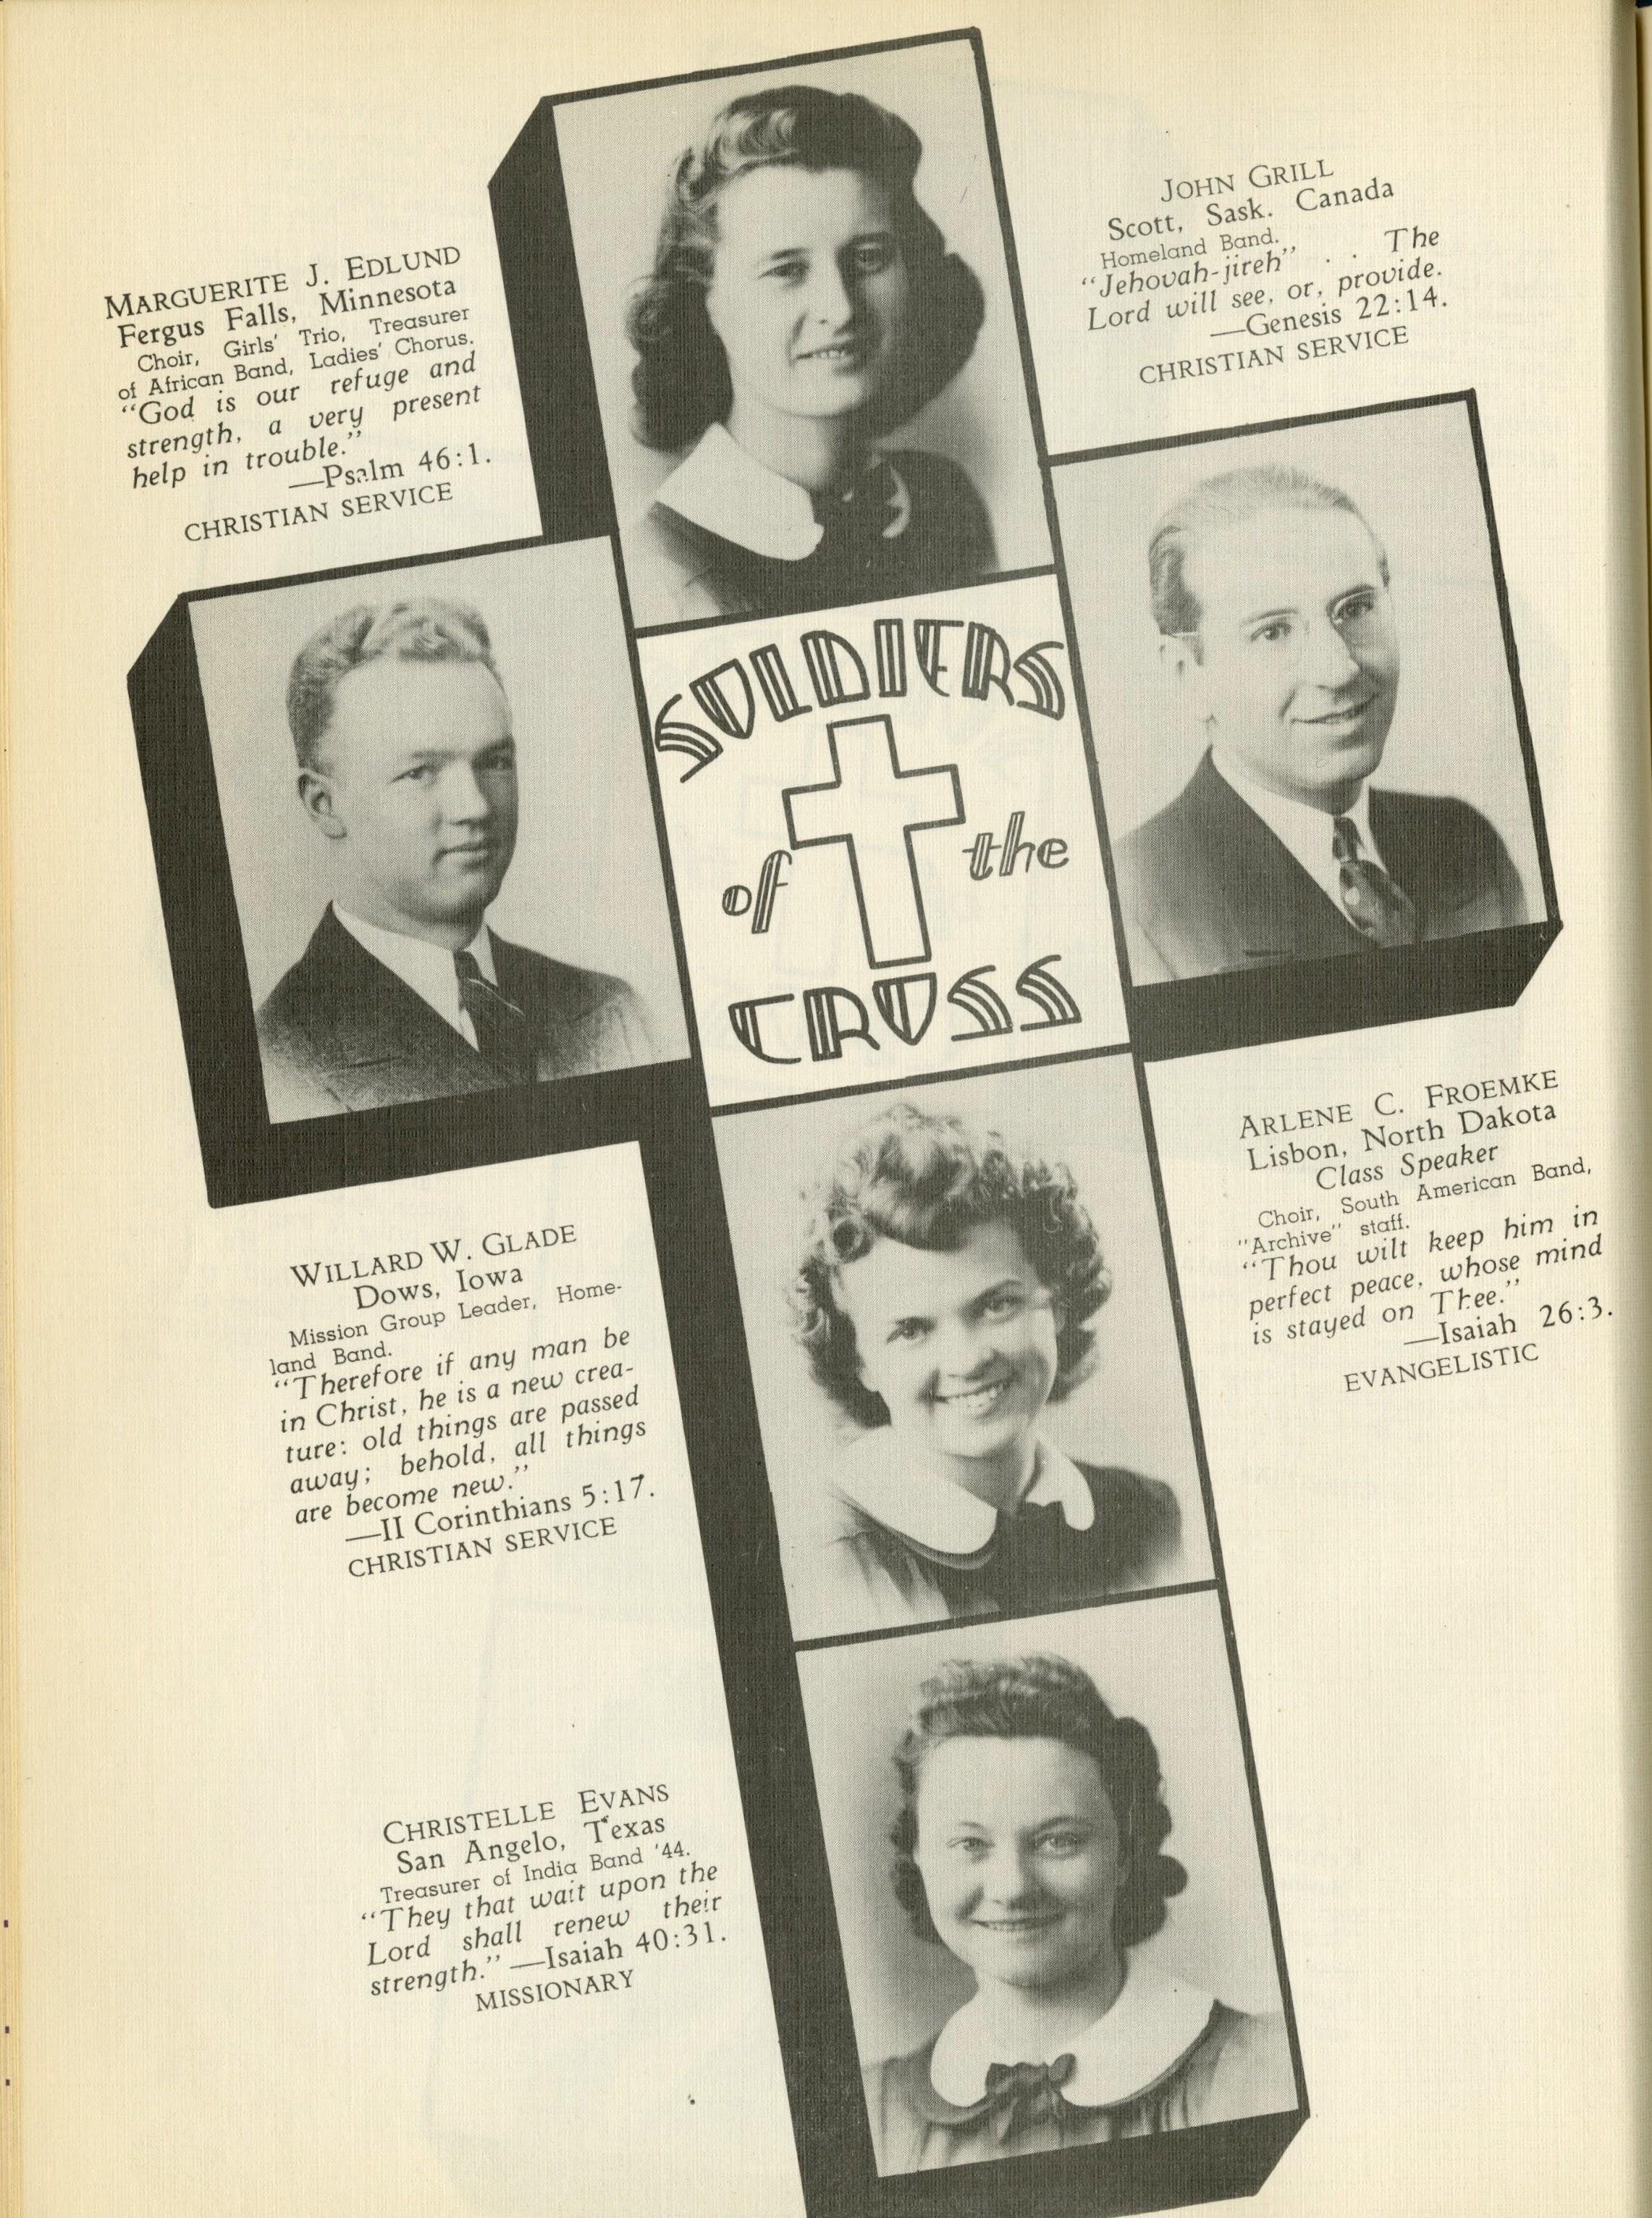 MARGUERITE J. EDLUND
Fergus Falls, Minnesota
Choir, Girls' Trio, Treasurer
of African Band, Ladies' Chorus.
"God is our refuge and
strength, a very present
help in trouble."
—Psalm 46:1.
CHRISTIAN SERVICE
JOHN GRILL
Scott, Sask. Canada
Homeland Band.
"Jehovah-jireh" . . The
Lord will see, or, provide.
—Genesis 22:14.
CHRISTIAN SERVICE
SOLDIERS
of the
CROSS
WILLARD W. GLADE
Dows, Iowa
Mission Group Leader, Home-
land Band.
"Therefore if any man be
in Christ, he is a new crea-
ture: old things are passed
away; behold, all things
are become new."
—II Corinthians 5:17.
CHRISTIAN SERVICE
ARLENE C. FROEMKE
Lisbon, North Dakota
Class Speaker
Choir, South American Band,
"Archive" staff.
"Thou wilt keep him in
perfect peace, whose mind
is stayed on Thee."
—Isaiah 26:3.
EVANGELISTIC
CHRISTELLE EVANS
San Angelo, Texas
Treasurer of India Band '44.
"They that wait upon the
Lord shall renew their
strength." —Isaiah 40:31.
MISSIONARY